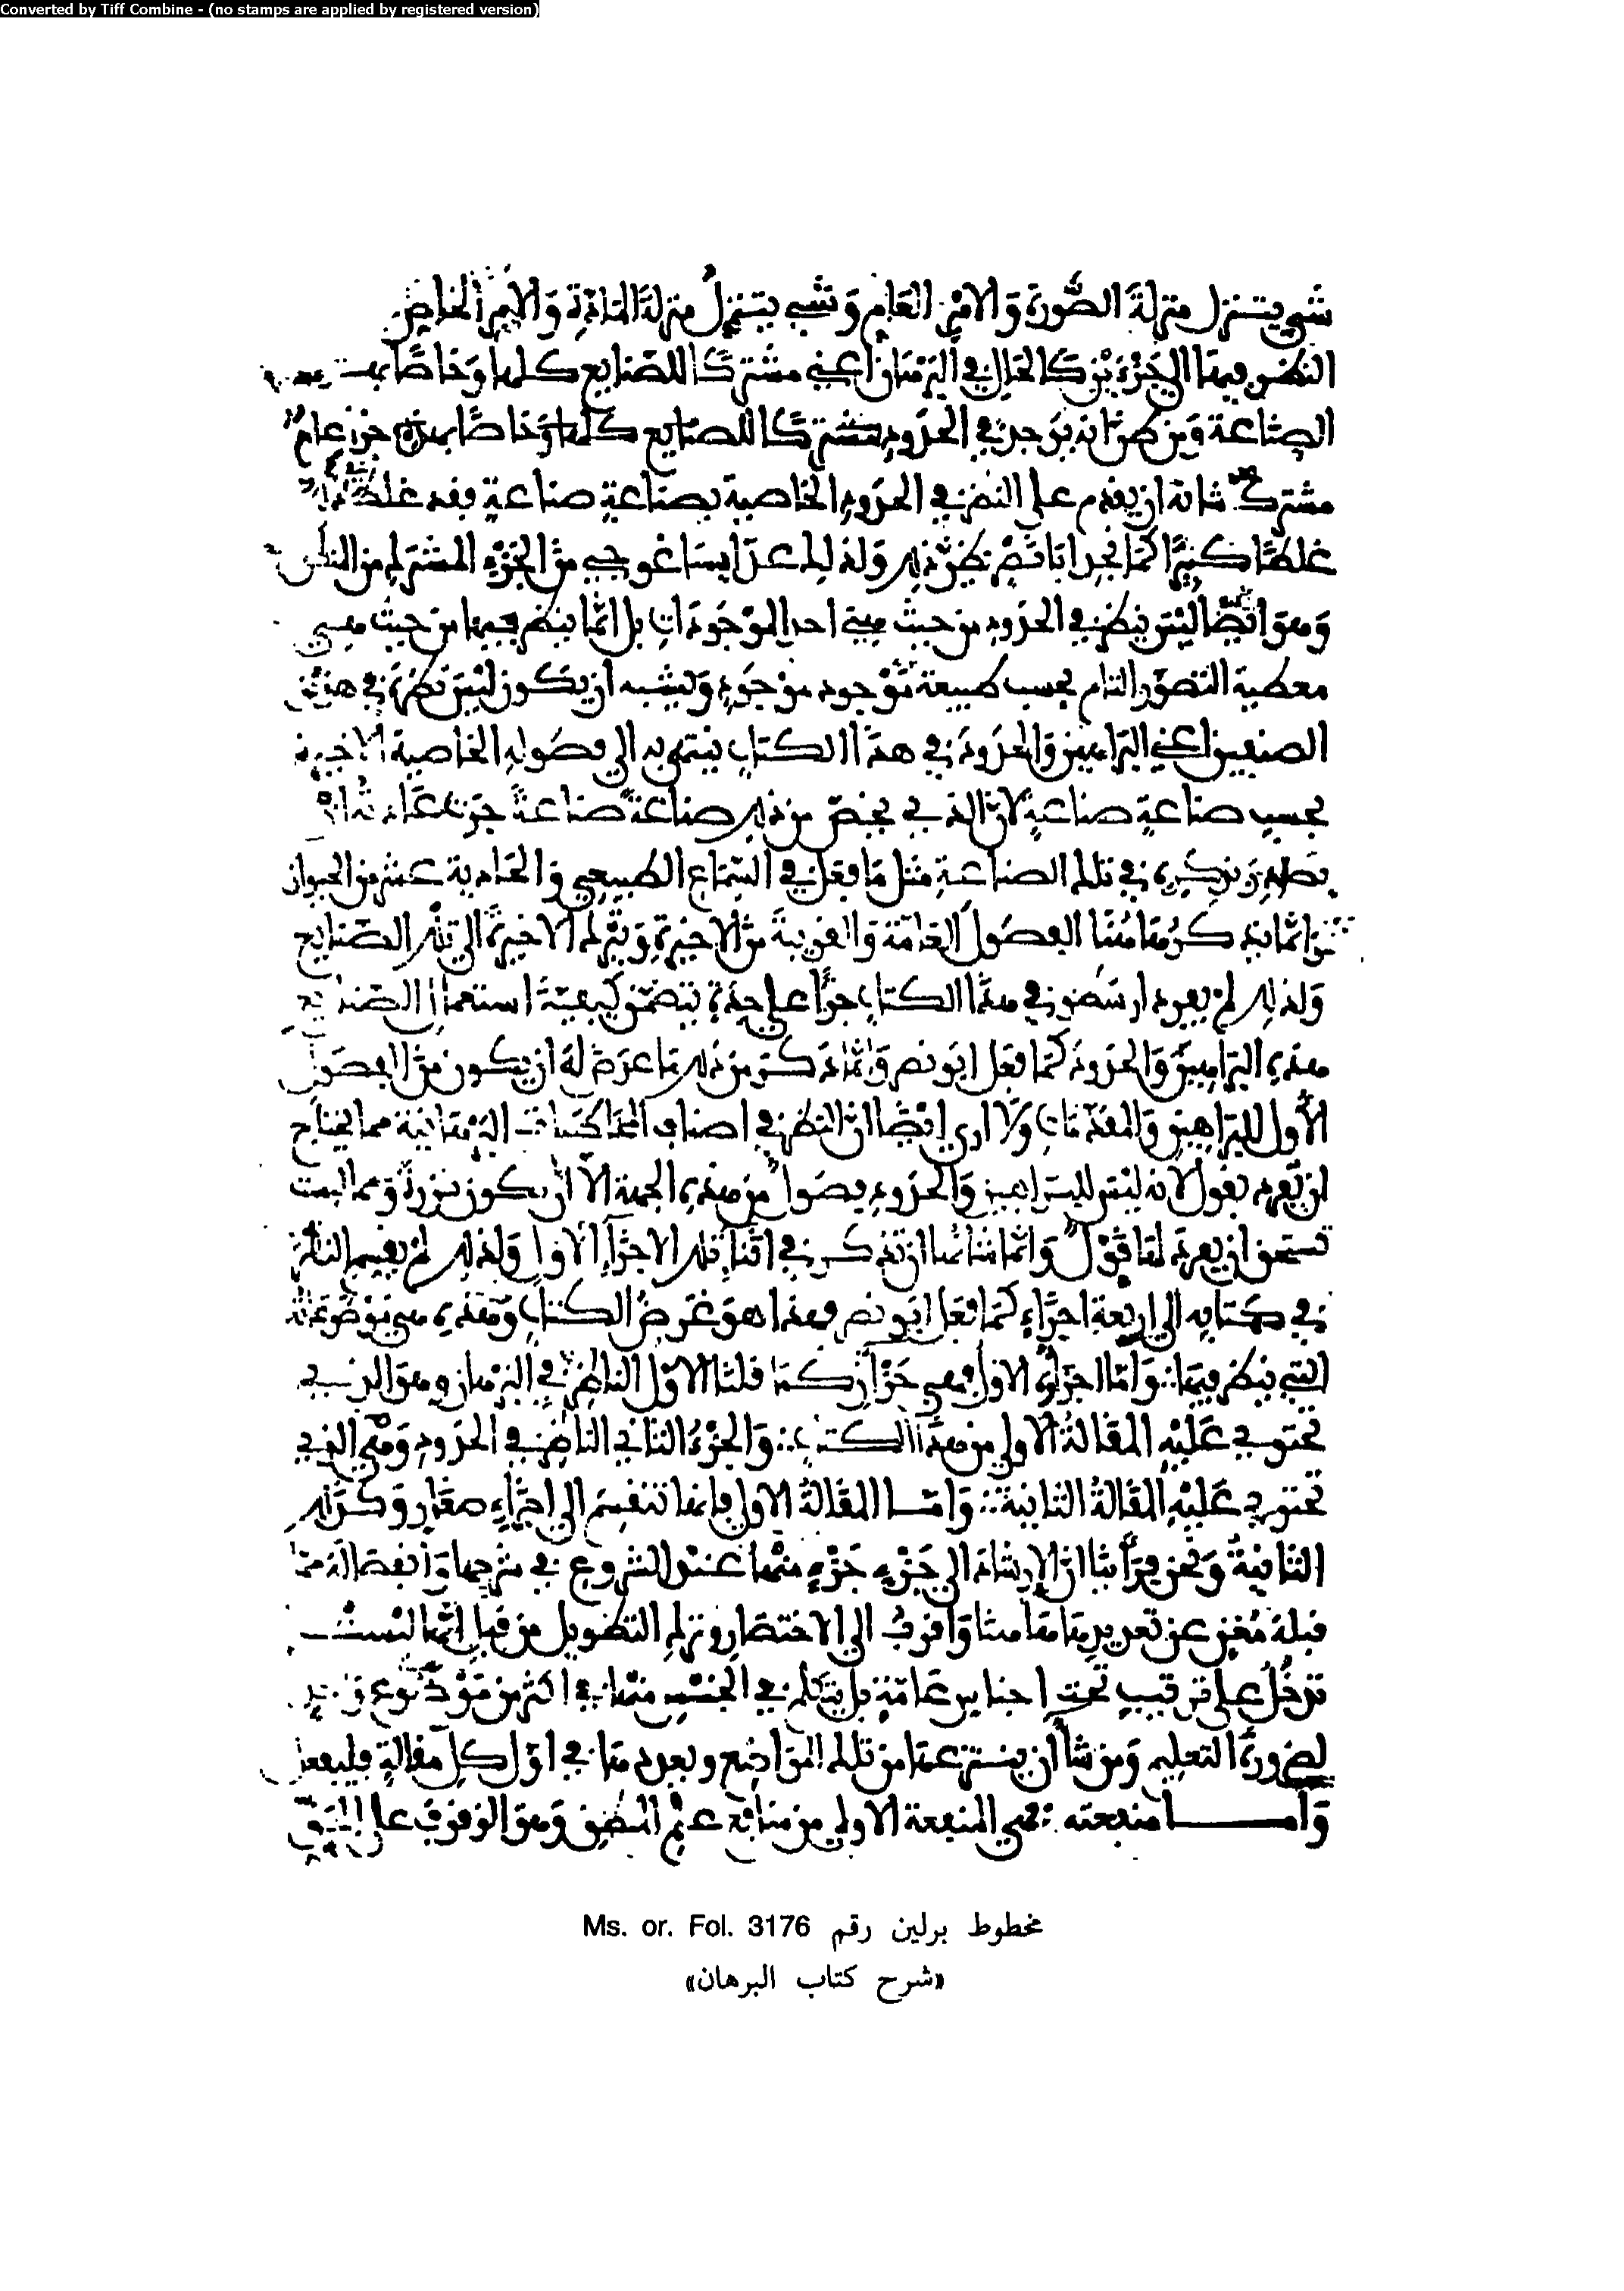 Converted by Tiff Combine - (no stamps are applied by registered version)
شي يتنزل منزلة الصُّورة وَالامْر العَام وَشي يتنزلُ منزلةَ المادّة وَالامر الخاص
النظر فيها الى جَزْءين كالحال في البَرْهان اعني مشتركًا للصَّنايع كلها وَخاصًّا
الصناعة وَمن ظن انه يَوجد في الحَدود مشتركًا للصنايع كلها وَخاصًّا جزء عام
مشترك شانه ان يقدم على النظر في الحَدود الخاصية بصنَاعةٍ صناعةٍ فقد غلط
غلطًا كبيرًا كما نجد ابا نَصْر يَظنّ ذلك وَلذلك عدّ ايسَاغوجي منَ الجَزْء المشترك من النظر
وَهوَ ايضًا ليْسَ ينظر في الحدود من حيث هية احد الموْجُودَات بل انَّما ينظر فيها من حيث هي
معطية التصَوّر التام بحسب طبيعة مَوْجود موْجَودٍ وَيشبه ان يكون ليْسَ نظرهَ في هذين
الصنفين اعني البَراهين وَالحَدود في هذا الكتاب ينتهي به الى فصَوله الخاصية الاخيرة
بحسب صناعةٍ صناعةٍ لانّ الذي يخصّ من ذلك صناعَة صناعةً جَرَت عَادته ان
يذكره في تلك الصناعةِ مثل مَا فعل في السَّماع الطبيعي وَالحَادية عشر من الحيوان
وَانَّما يذكر هَاهُنا الفصُول العَامّة وَالقريبةَ منَ الاخيرةِ وَيترك الاخيرةَ الى تلك الصَّنايع
وَلذلك لمْ يفرد ارسَطو في هذا الكتاب جزًا على حِدَة يتضمّن كيفيّةَ استعمال الصنايع
هذه البَراهينَ وَالحدودَ كما فعل ابَو نصر وَانَّما ذكَرَ من ذلك مَا عرَض لهَ ان يكون منَ الفصَول
الأُول للبَراهين وَالمقدّمَات وَلا ارى ايْضًا انّ النظر في اصناف المخاطبَات البرْهَانية مما يحتاج
ان يفرد بقول لانه ليْس للبَراهين وَالحدود فصَولٌ من هذه الجهة الّا ان يكون نزرةً وَمما ليست
تستحق ان يفرد لهَا قوْلٌ وَانّما شانها ان تذكر في اثناء تلك الاجزَاءِ الاوَل وَلذلك لمْ يقسم النظر
في كتابه الى اربعة اجزَاءٍ كمَا فعَل ابَو نصر فهذا هوَ غَرَضُ الكتاب وَهذه هي مَوْضَوعَاته
التي ينظر فيهَا. وَامّا اجزاؤُه الاوَل فهي جَزْآن كمَا قلنَا الاوّل الناظر في البَرْهان وهوَ الذي
تحتوي عَليْهِ المقالةُ الاولى من هذا الكتاب. وَالجُزْءُ الثاني الناظر في الحَدود وَهي الذي
تحتوي عَليْهِ المقالةُ الثانيةُ. وَامَّا المقَالةُ الاولى فانها تنقسم الى اجزاءٍ صغَارٍ وَكذلك
الثانيةُ وَنحن نرَى انّ الارشادَ الى جَزْءٍ جَزْءٍ منْها عند الشروع في شرحِها وَانفصَاله ممّا
قبله مُغنٍ عن تعديدِهَا هَاهنا وَاقربُ الى الاختصَار وترك التطويل من قبل انَّها ليْسَتْ
تدخُلُ على ترتيبٍ تحت اجناسٍ عَامّة بل يتكلم في الجنْس منها في اكثر من مَوْضوع
لضرورةَ التعليم وَمن شاءَ ان ينتزعها من تلك المواضِع ويعددهَا في اوّل كلِّ مقالةٍ فليفعل
وَامـا منفعته فهي المنفعة الاولى من منَافع علم المنطق وَهوَ الوقوفُ على الحَقّ
مخطوط برلين رقم Ms. or. Fol. 3176
«شرح كتاب البرهان»